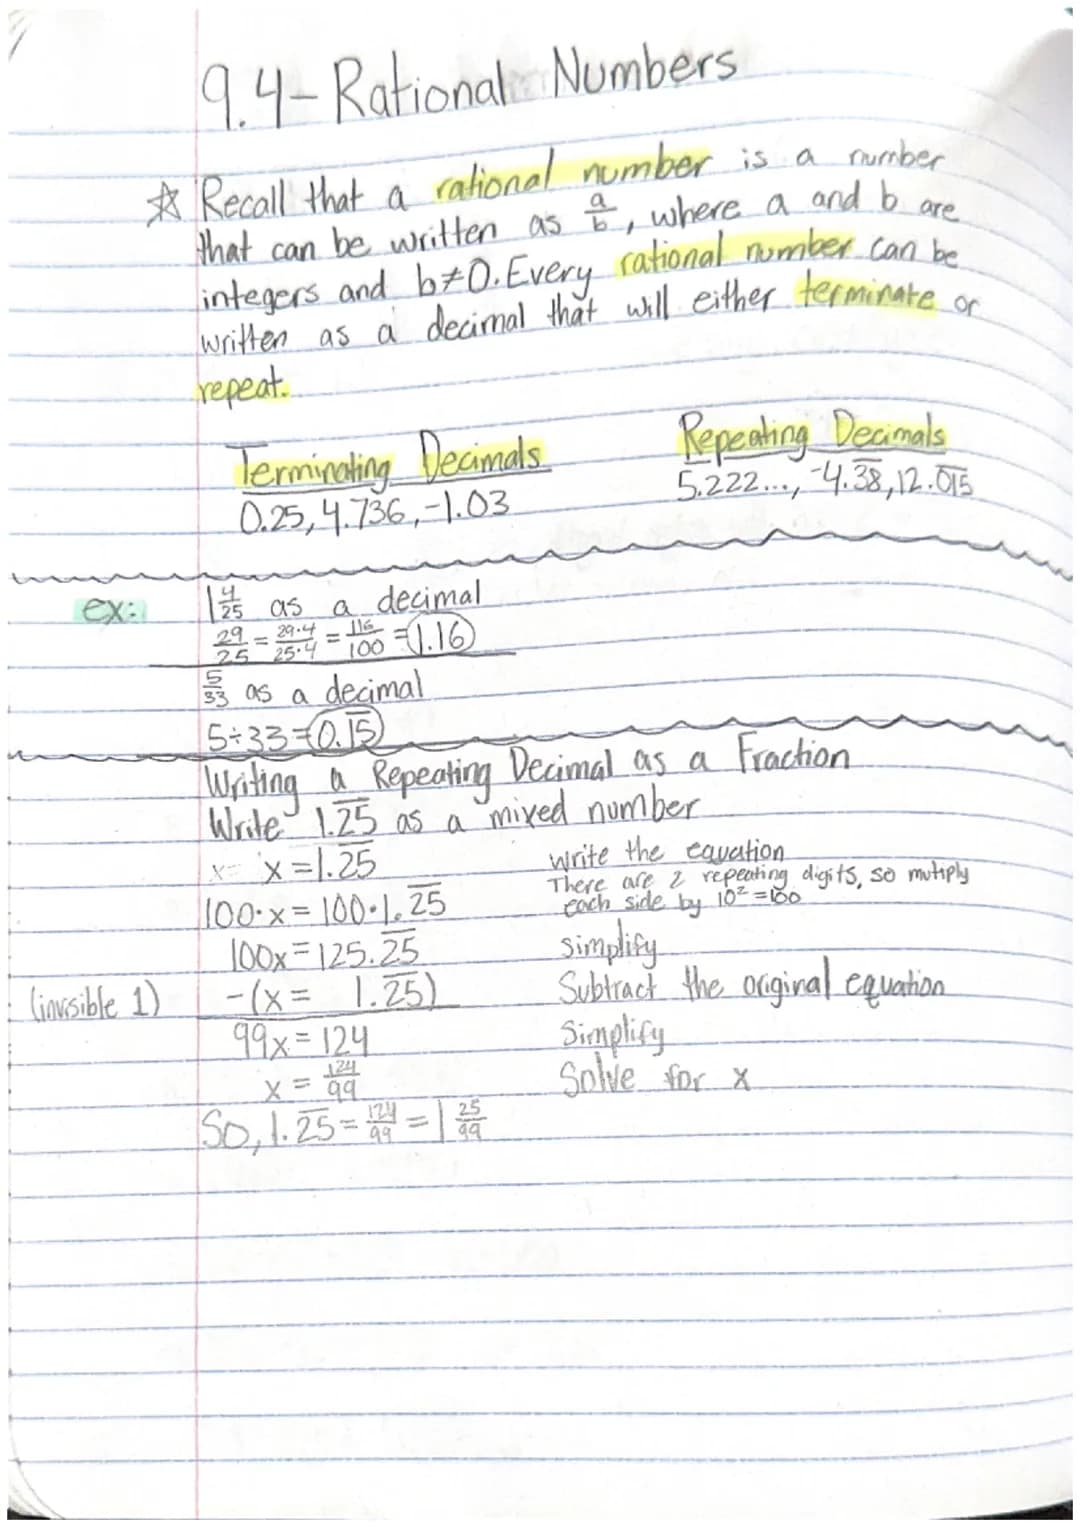 9.4- Rational Numbers
☆ Recall that a rational number is a number
that can be written as a/b, where a and b are
integers and b≠0. Every rational number can be
written as a decimal that will either terminate or
repeat.
Terminating Decimals
0.25, 4.736, -1.03
Repeating Decimals
5.222..., -4.3̅8̅, 12.0̅1̅5̅
ex: 1 4/25 as a decimal
29/25 = 29·4/25·4 = 116/100 = 1.16
5/33 as a decimal
5÷33=0.1̅5̅
Writing a Repeating Decimal as a Fraction
Write 1.2̅5̅ as a mixed number
x= x=1.2̅5̅ write the equation
There are 2 repeating digits, so mutiply
100·x=100·1.2̅5̅ each side by 10²=100
100x=125.2̅5̅ simplify
(invisible 1) -(x= 1.2̅5̅) Subtract the original equation
99x=124 Simplify
x=124/99 Solve for x
So, 1.2̅5̅=124/99=1 25/99